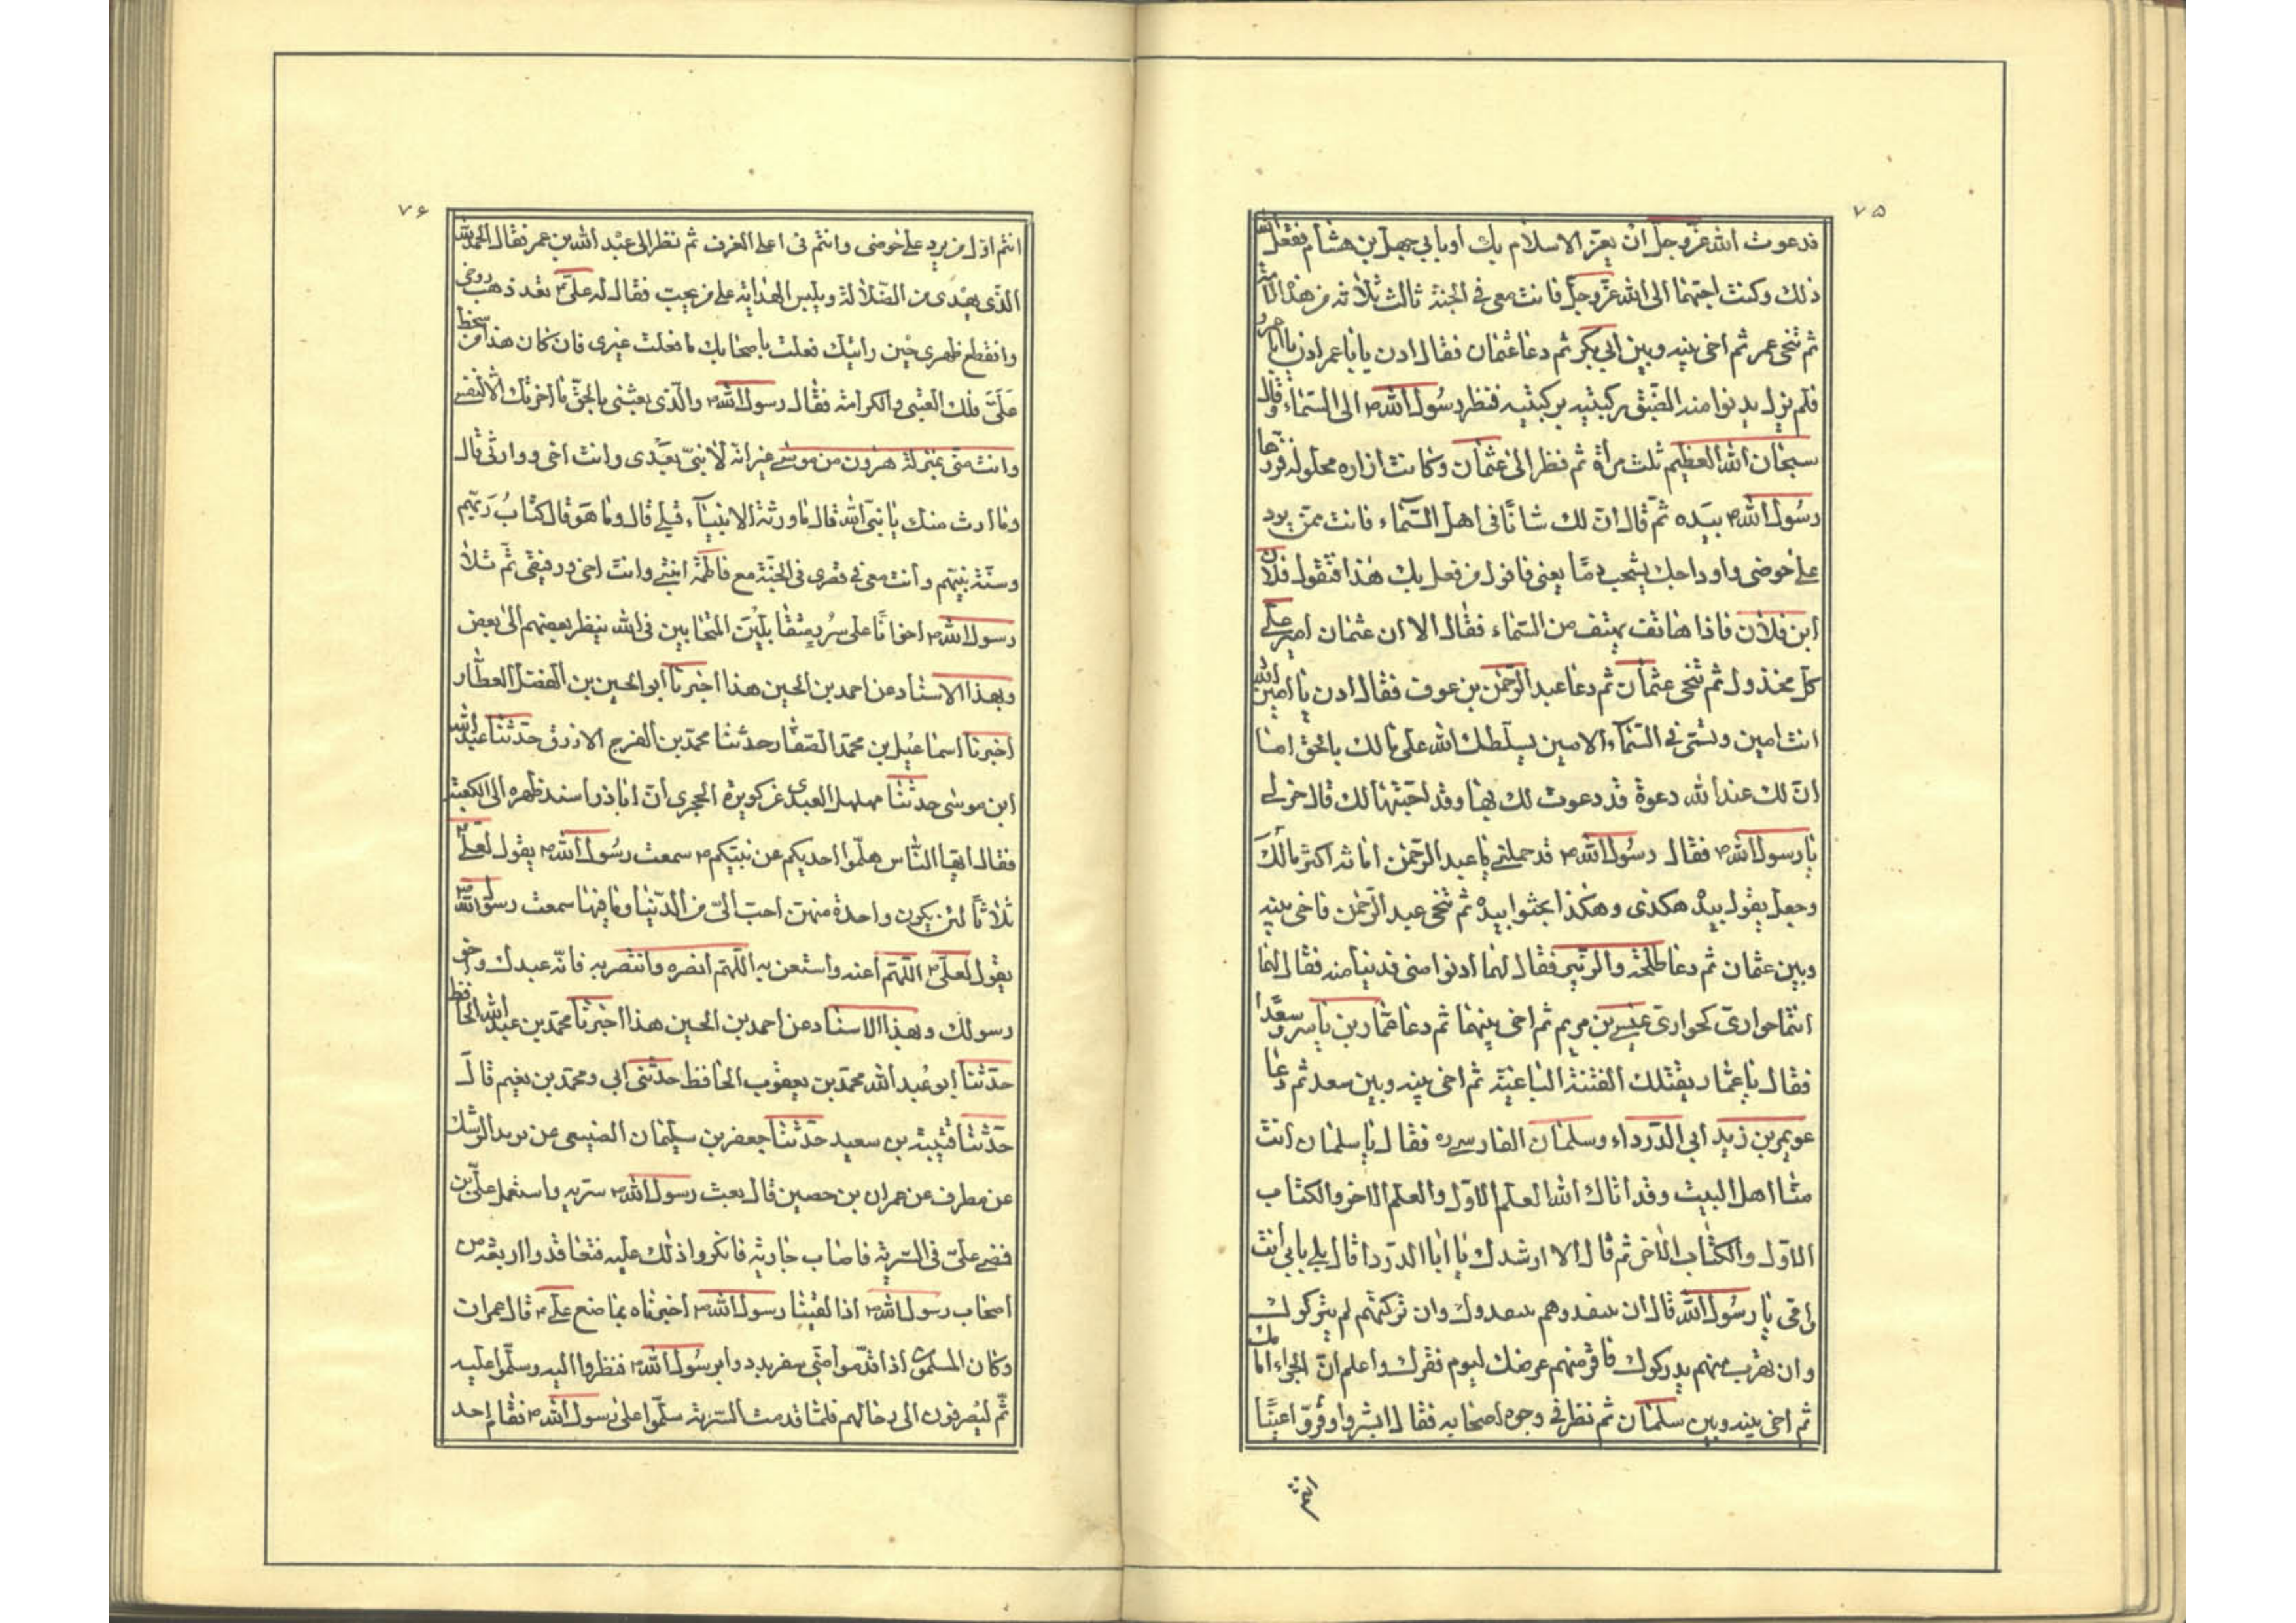 ٧٥
قد دعوت الله عزّ وجلّ ان يعزّ الاسلام بك أو بابي جهل بن هشام ففعل الله
ذلك وكنت احبّهما الى الله عزّ وجلّ فانت معى فى الجنة ثالث ثلاثه من هذه الامّة
ثم تنحى عمر ثم اخى بينه وبين ابي بكر ثم دعا عثمان فقال ادن يا با عمر ادن يا ابا عمرو
فلم يزل يدنوا منه الصق ركبتيه بركبتيه فنظر رسُول الله ص الى السّماء وقال
سبحان الله العظيم ثلث مرات ثم نظر الى عثمان وكانت ازاره محلوله فزرّها
رسُول الله ص بيَده ثمّ قال انّ لك شانًا فى اهل السّماء فانت ممّن يرد
على حوضى واوداجك يشخب دمًا يعنى فاقول من فعل بك هذا فتقول فلان
ابن فلان فاذا هاتف يهتف من السّماء فقال الا ان عثمان امير على
كلّ مخذول ثم تنحى عثمان ثم دعا عبد الرّحمن بن عوف فقال ادن يا امين الله
انت امين وتسمّى فى السّمآء الامين يسلّطك الله على مالك بالحق اما
انّ لك عند الله دعوة قد دعوت لك بها وقد اختبتها لك قال خر لى
يا رسول الله ص فقال رسُول الله ص قد حملتنى يا عبد الرّحمن امانة اكثر مالك
وجعل يقول بيده هكذى وهكذا يحثوا بيده ثم تنحى عبد الرّحمن فاخى بينه
وبين عثمان ثم دعا طلحة والزّبير فقال لهما ادنوا منى فدنيا منه فقال لهما
انتما حوارىّ كحوارى عيسى بن مريم ثم اخى بينهما ثم دعا عمّار بن ياسر وسعدا
فقال يا عمّار يقتلك الفتنة الباغية ثم اخى بينه وبين سعد ثم دعا
عويمر بن زيد ابى الدّرداء وسلمان الفارسى ره فقال يا سلمان انت
منّا اهل البيت وقد اتاك الله العلم الاوّل والعلم الاخر والكتاب
الاوّل والكتاب الاخر ثم قال الا ارشدك يا ابا الدّردا قال بلى بابى انت
وامّى يا رسُول الله قال ان تنقدوهم ينقدوك وان تركتهم لم يتركوك
وان تهرب منهم يدركوك فاقرضهم عرضك ليوم فقرك واعلم انّ الجزاء امامك
ثم اخى بينه وبين سلمان ثم نظر فى وجوه اصحابه فقال ابشروا وقرّوا عينًا
انتم
٧۶
انتم اوّل من يرد على حوضى وانتم فى اعلى الغرف ثم نظر الى عبْد الله بن عمر فقال الحمد لله
الّذى يهدى من الضّلالة ويلبس الهداية على من يحبّ فقال له علىّ ع لقد ذهب روحى
وانقطع ظهرى حين رايتك فعلت باصحابك ما فعلت غيرى فان كان هذا من سخط
عَلىّ فلك العتبى والكرامة فقال رسول الله ص والّذى بعثنى بالحقّ ما اخرتك الا لنفسى
وانت منّى بمنزلة هرون من موسى غير انّه لا نبىّ بعدى وانت اخى ووارثى قال
وما ارث منك يا نبىّ الله قال ما ورثه الانبيآء قبلى قال وما هو قال كتابُ ربّهم
وسنّة نبيّهم وأنت معى فى قصرى فى الجنّة مع فاطمة ابنتى وانت اخى ورفيقى ثمّ تلا
رسول الله ص اخوانًا على سُرر متقابلين المتحابين فى الله ينظر بعضهم الى بعض
وبهذا الاسناد عن احمد بن الحسين هذا اخبرنا ابو الحسين بن الفضل العطّار
اخبرنا اسماعيل بن محمّد الصفّار حدّثنا محمّد بن الفرج الازرق حدّثنا عبيد الله
ابن موسى حدّثنا مهلهل العبدى عن كويرة الهجرى انّ اباذر اسند ظهره الى الكعبة
فقال ايّها النّاس هلمّوا احديكم عن نبيّكم ص سمعت رسُول الله ص يقول لعلى ع
ثلاثًا لئن يكون واحدة منهنّ احبّ الىّ من الدّنيا وما فيها سمعت رسول الله ص
يقول لعلىّ ع اللّهم أعنه واستعن به اللّهمّ انصره وانتصر به فانّه عبدك واخو
رسولك وبهذا الاسناد عن احمد بن الحسين هذا اخبرنا محمّد بن عبد الله الحافظ
حدّثنا ابو عُبد الله محمّد بن يعقوب الحافظ حدّثنى ابى ومحمّد بن نعيم قال
حدّثنا قتيبة بن سعيد حدّثنا جعفر بن سليمان الضبيعى عن يريد الرشك
عن مطرف عن عمران بن حصين قال بعث رسول الله ص سريه واستعمل علىّ بن
فمضى علىّ فى السّرية فاصاب جارية فانكروا ذلك عليه فتعاقدوا اربعة من
اصحاب رسول الله ص اذا لقينا رسول الله ص اخبرناه بما صنع على ع قال عمران
وكان المسلمون اذا قدّموا من سفر بدوا برسُول الله ص فنظروا اليه وسلّموا عليه
ثمّ ينصرفون الى رحالهم فلمّا قدمت السّرية سلّموا على رسول الله ص فقام احد